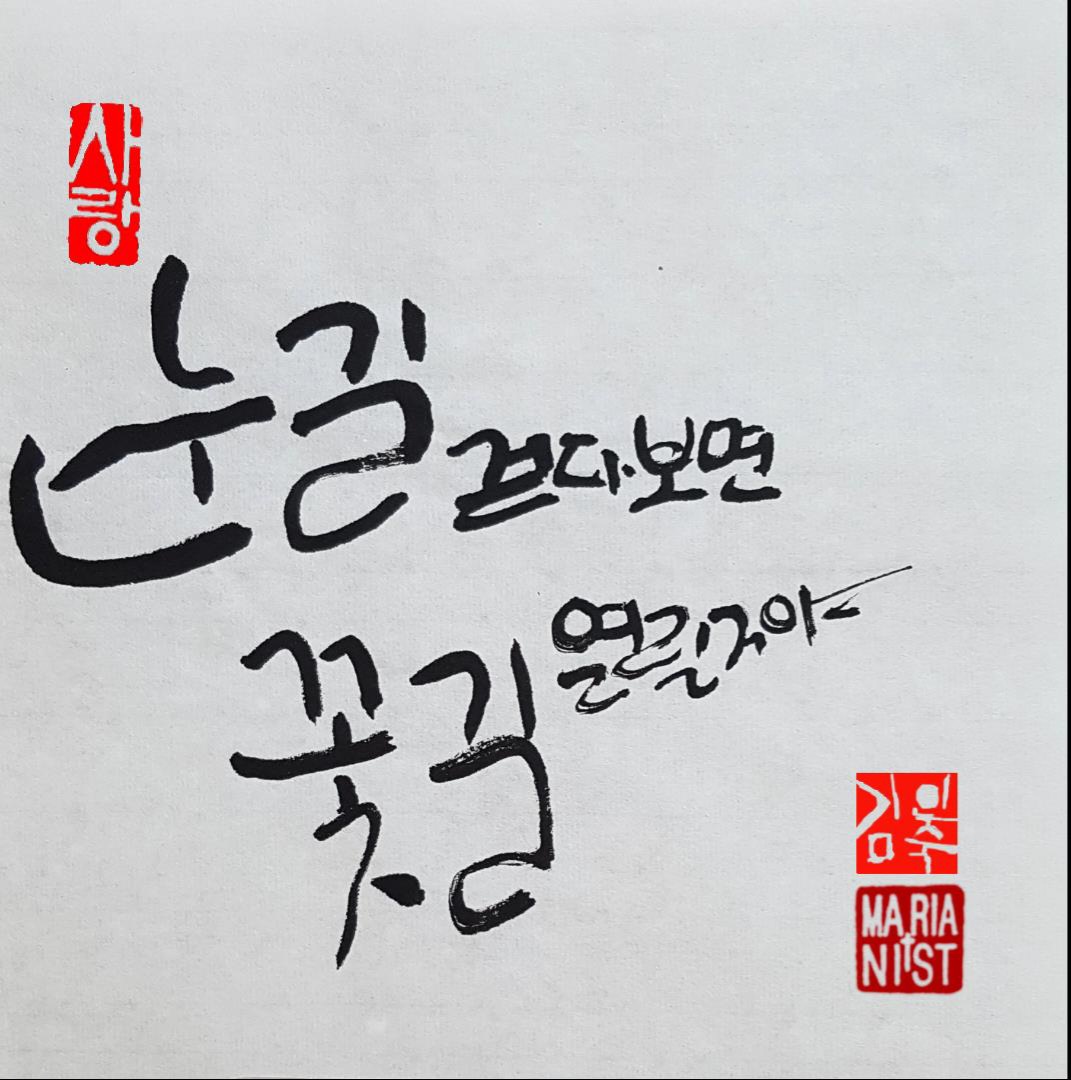 사랑
눈길 걷다보면
꽃길 열릴거야
김
MARIA
NIST